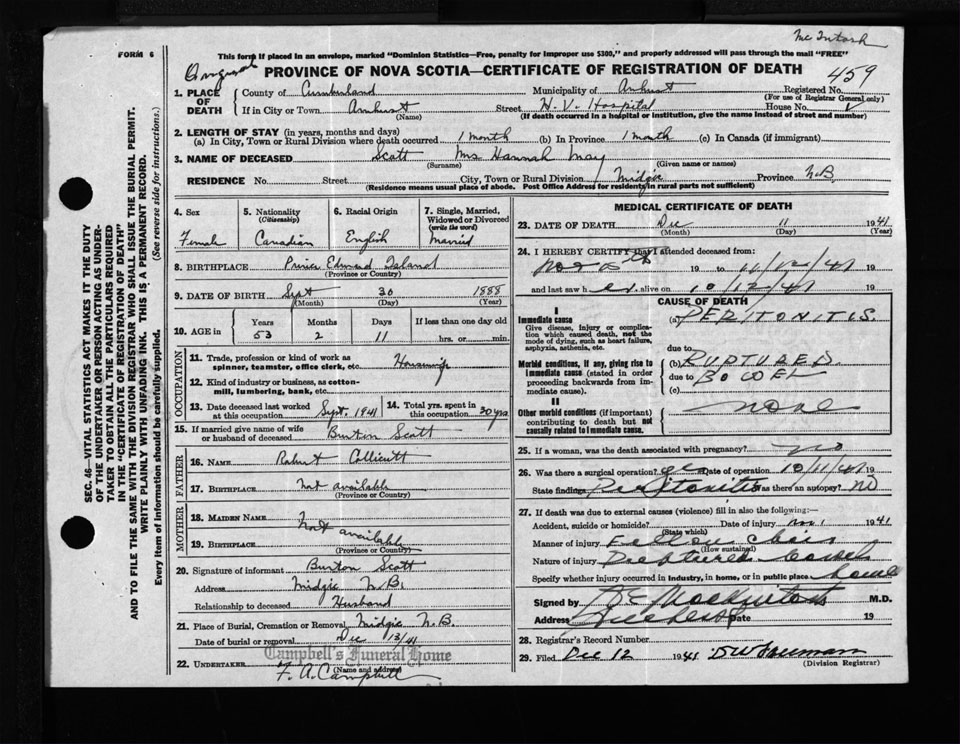 McIntosh
FORM 6
This form if placed in an envelope, marked "Dominion Statistics—Free, penalty for improper use $300," and properly addressed will pass through the mail "FREE"
Original
PROVINCE OF NOVA SCOTIA—CERTIFICATE OF REGISTRATION OF DEATH
459
1. PLACE OF DEATH
County of Cumberland Municipality of Amherst Registered No.
(For use of Registrar General only)
If in City or Town Amherst Street H. V. Hospital House No.
(Name) (If death occurred in a hospital or institution, give the name instead of street and number)
2. LENGTH OF STAY (in years, months and days)
(a) In City, Town or Rural Division where death occurred 1 month (b) In Province 1 month (c) In Canada (if immigrant)
3. NAME OF DECEASED Scott Mrs Hannah May
(Surname) (Given name or names)
RESIDENCE No. Street City, Town or Rural Division Midgic Province N.B.
(Residence means usual place of abode. Post Office Address for residents in rural parts not sufficient)
SEC. 46—VITAL STATISTICS ACT MAKES IT THE DUTY
OF THE UNDERTAKER OR PERSON ACTING AS UNDER-
TAKER TO OBTAIN ALL THE PARTICULARS REQUIRED
IN THE "CERTIFICATE OF REGISTRATION OF DEATH"
AND TO FILE THE SAME WITH THE DIVISION REGISTRAR WHO SHALL ISSUE THE BURIAL PERMIT.
WRITE PLAINLY WITH UNFADING INK. THIS IS A PERMANENT RECORD.
Every item of information should be carefully supplied. (See reverse side for instructions.)
4. Sex 5. Nationality (Citizenship) 6. Racial Origin 7. Single, Married, Widowed or Divorced (write the word)
Female Canadian English Married
8. BIRTHPLACE Prince Edward Island
(Province or Country)
9. DATE OF BIRTH Sept 30 1888
(Month) (Day) (Year)
10. AGE in Years Months Days If less than one day old
53 2 11 hrs. or min.
OCCUPATION
11. Trade, profession or kind of work as spinner, teamster, office clerk, etc. Housewife
12. Kind of industry or business, as cotton-mill, lumbering, bank, etc.
13. Date deceased last worked at this occupation Sept. 1941 14. Total yrs. spent in this occupation 30 yrs
15. If married give name of wife or husband of deceased Burton Scott
FATHER
16. NAME Robert Collicutt
17. BIRTHPLACE Not available
(Province or Country)
MOTHER
18. MAIDEN NAME Not available
19. BIRTHPLACE
(Province or Country)
20. Signature of informant Burton Scott
Address Midgic N.B.
Relationship to deceased Husband
21. Place of Burial, Cremation or Removal Midgic N.B.
Date of burial or removal Dec 13/41
Campbell's Funeral Home
22. UNDERTAKER F. A. Campbell
(Name and address)
MEDICAL CERTIFICATE OF DEATH
23. DATE OF DEATH Dec 11 1941
(Month) (Day) (Year)
24. I HEREBY CERTIFY that I attended deceased from:
19 to 11/12/41 19
and last saw h er alive on 10/12/41 19
CAUSE OF DEATH
I
Immediate cause
Give disease, injury or complication which caused death, not the mode of dying, such as heart failure, asphyxia, asthenia, etc.
(a) PERITONITIS.
due to
Morbid conditions, if any, giving rise to immediate cause (stated in order proceeding backwards from immediate cause).
(b) RUPTURED
due to BOWEL
(c)
II
Other morbid conditions (if important) contributing to death but not causally related to immediate cause.
NONE
25. If a woman, was the death associated with pregnancy? No
26. Was there a surgical operation? yes Date of operation 10/11/41 19
State findings Peritonitis Was there an autopsy? NO
27. If death was due to external causes (violence) fill in also the following:
Accident, suicide or homicide? Date of injury Nov 1 1941
(State which)
Manner of injury Fell on chair
(How sustained)
Nature of injury Ruptured bowel
Specify whether injury occurred in industry, in home, or in public place home
Signed by M.D.
Address Amherst Date 19
28. Registrar's Record Number
29. Filed Dec 12 1941
(Division Registrar)